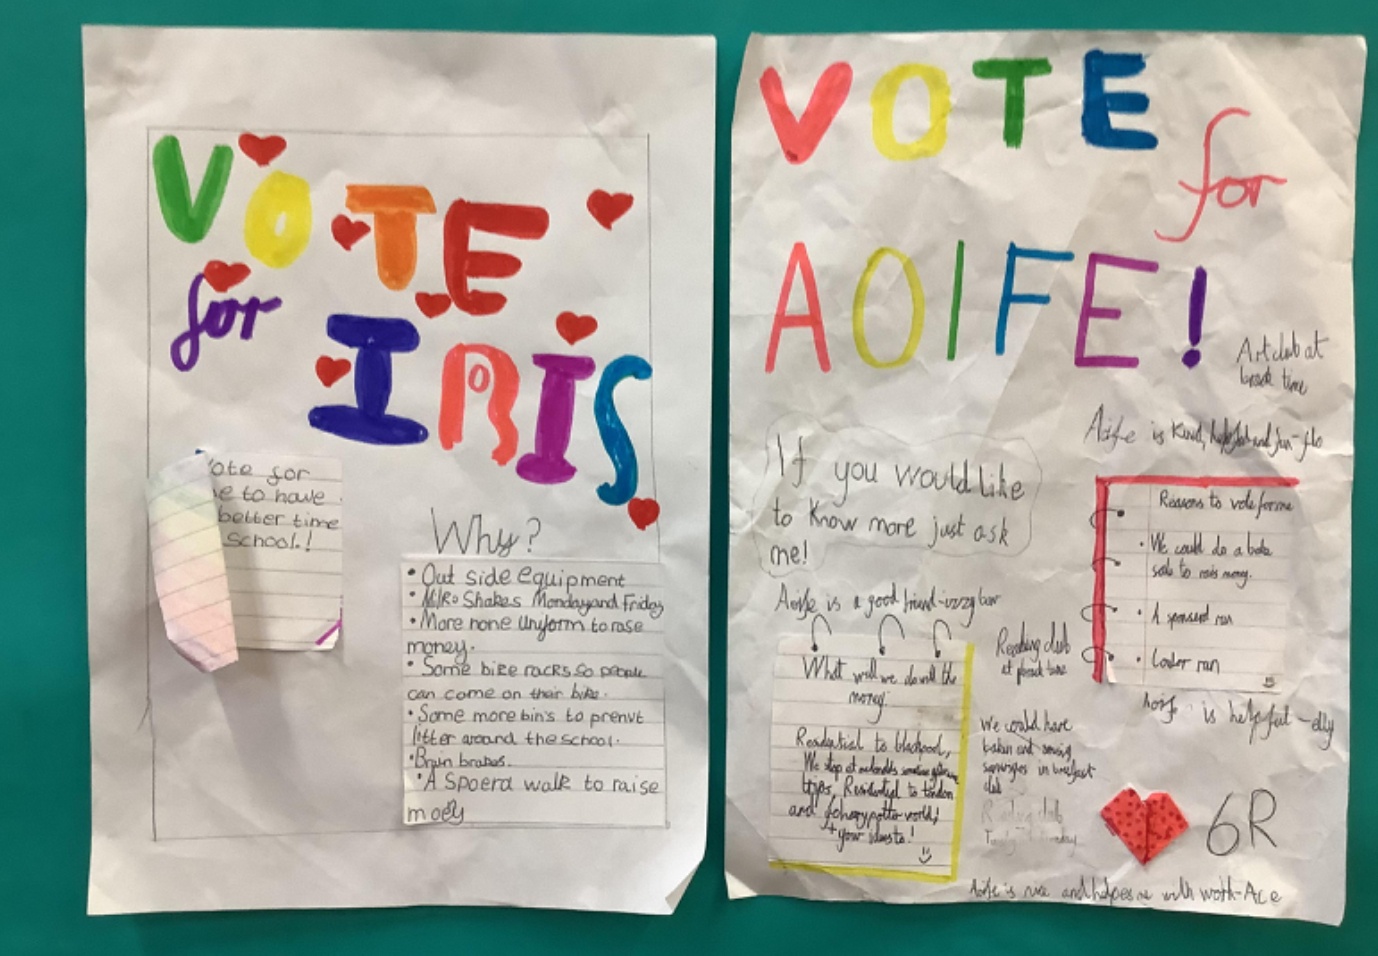 VOTE
for
IRIS
Vote for
e to have
better time
school.!
Why?
• Out side equipment
• Milko Shakes Monday and Friday
• More none Uniform to rase
money.
• Some bike racks so people
can come on their bike.
• Some more bin's to prenvt
litter around the school.
• Brain brakes.
• A Spoerd walk to raise
moey
VOTE
for
AOIFE!
Art club at
break time
Aoife is kind, helpful and fun-flo
If you would like
to know more just ask
me!
Reasons to vote for me
• We could do a bake
sale to rais money.
• A sponserd run
• Coaler run
Aoife is a good friend-
What will we do will the
money.
Residential to blackpool,
We stop at
trips, Residential to london
and harry potter world,
+ your ideas!
Reading club
at break time
Aoife is helpful-elly
We could have
in breakfast
club
Reading club
6R
Aoife is nice and helpes me with work-Ace